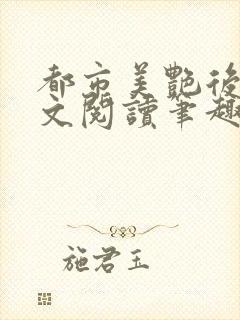 都市美艷後
文閱讀筆趣
施君玉